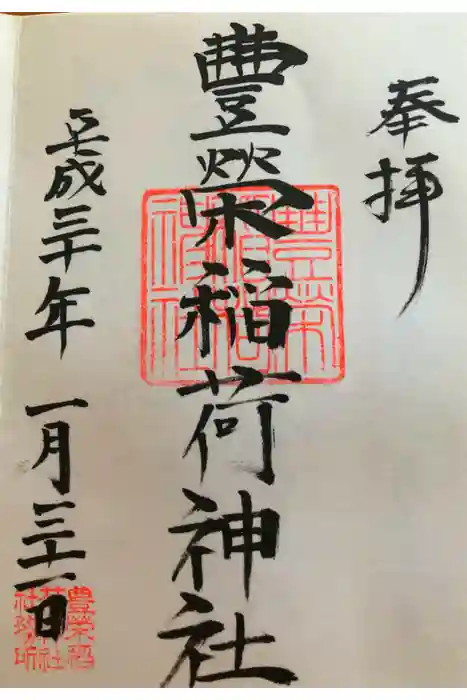 奉拝
豐榮稲荷神社
豊榮
稲荷
神社
平成三十年 一月三十一日
豊榮稲
荷神社
社務所